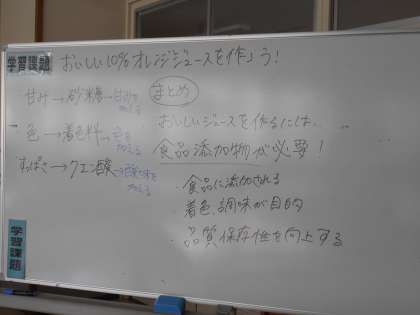 学習課題
おいしい10%オレンジジュースを作ろう!
甘み→砂糖→甘みを加える
色→着色料→色を加える
すっぱさ→クエン酸→酸味を加える
まとめ
おいしいジュースを作るには、
食品添加物が必要!
・食品に添加される
着色、調味が目的
・品質保存性を向上する
学習課題